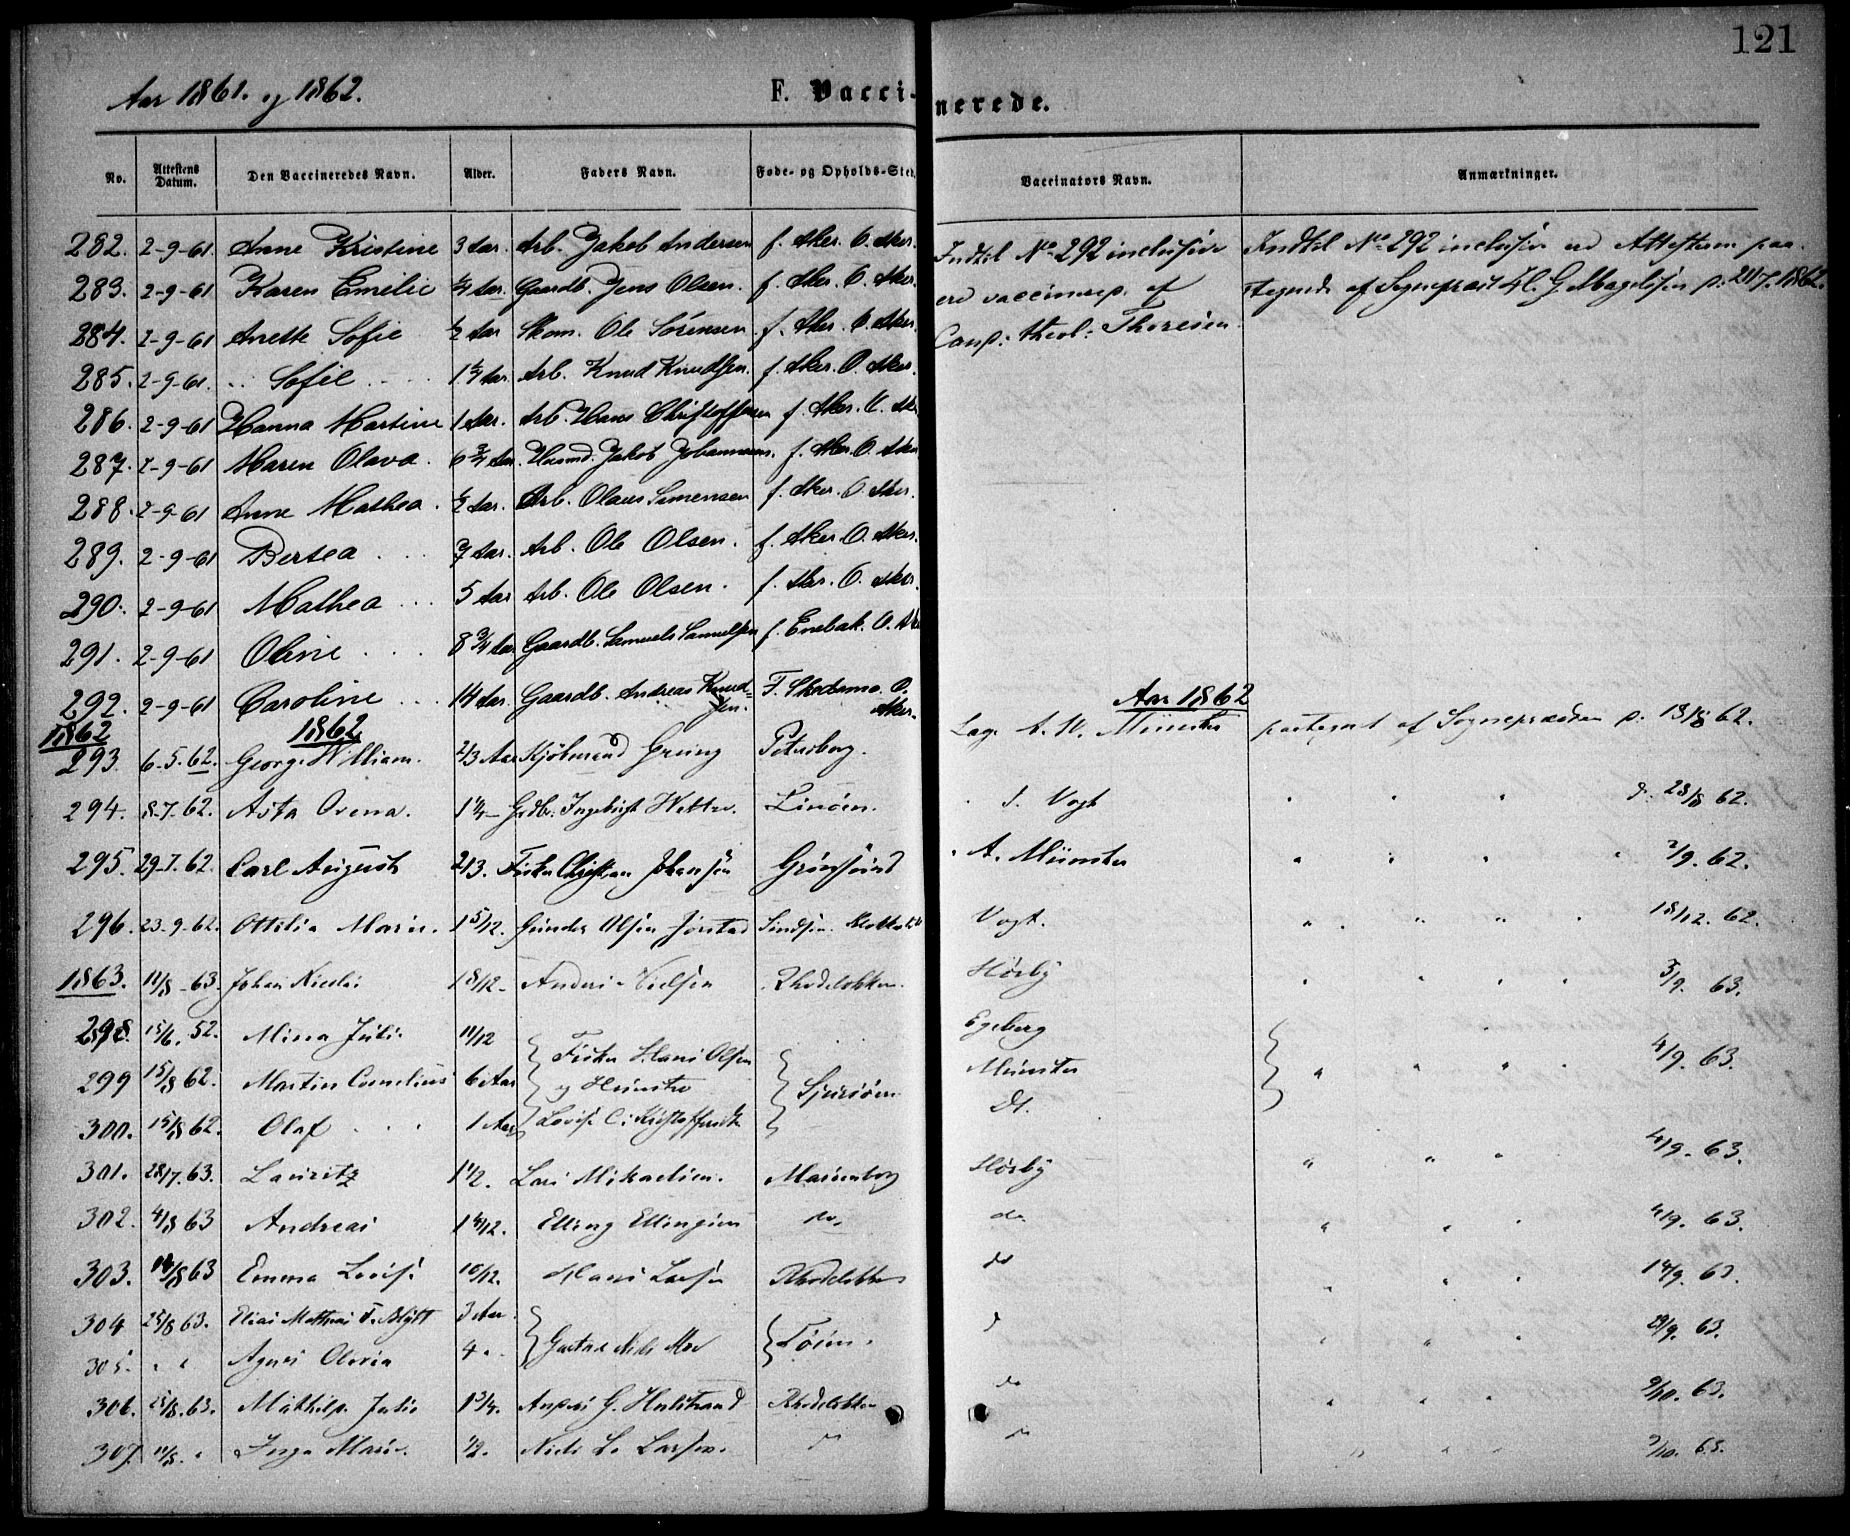 121
Aar 1861. og 1862.
F. Vaccinerede.
No. Attestens Datum. Den Vaccineredes Navn. Alder. Faders Navn. Føde- og Opholds-Sted. Vaccinators Navn. Anmærkninger.
282. 2-9-61. Anne Kristine 3 Aar. Arb. Jakob Andersen f. Aker. O. Aker. Indtil No 292 inclusive Indtil No 292 inclusiv er Attesterne paa-
283. 2-9-61 Karen Emilie Aar. Gaardb. Jens Olsen. f. Aker. O. Aker. ere vaccinerede af tegnede af Sognepræst G. Magelssen 1862.
284. 2-9-61 Anette Sofie ½ Aar Skom. Ole Sörensen f. Aker. O. Aker. Cand. theol. Thoresen.
285. 2-9-61. Sofie 1¼ Aar. Arb. Knud Knudsen. f. Aker. O. Aker.
286. 2-9-61 Hanna Martine 1 Aar. Arb. Hans Christoffersen f. Aker. O. Ak
287. 2-9-61 Maren Olava. 6¾ Aar. Husmd. Jakob Johannesen. f. Aker. O. Aker
288. 2-9-61 Anne Mathea. ½ Aar. Arb. Olaus Simensen f. Aker. O. Aker.
289. 2-9-61 Bertea 7 Aar. Arb. Ole Olsen. f. Aker. O. Aker.
290. 2-9-61 Mathea 5 Aar Arb. Ole Olsen. f. Aker. O. Aker.
291. 2-9-61 Oline 8¾ Aar Gaardb. Samuels Samuelsen f. Enebak. O. Ak
292. 2-9-61 Caroline 14 Aar Gaardb. Andreas Knud-sen. F. O. Aker.
1862 1862. Aar 1862
293. 6-5-62. George William. 2/3 Aar Kjöbmand Gruing Petersborg. Læge A. W. Münster paategnet af Sognepræsten d. 13/8 62.
294. 8-7-62. Asta Ovena. 1¼ Gdbr. Ingebrigt Linöen. S. Vogt d. 28/8 62.
295. 29-7-62. Carl August 2/3. Fisker Christian Johansen Grönsund A. Münster 2/9. 62.
296. 23-9-62. Ottilia Marie. 1 5/12. Gunder Olsen Jorstad Vogt. 18/12. 62.
1863. 11/8-63. Johan Nicolai 1 8/12. Anders Nielsen Rhodelökken. Hörbÿ 3/9. 63.
298. 15/6. 52. Mina Juli 11/12 Fisker Hans Olsen Egeberg
299 15/8 62. Martin Cornelius 6 Aar og Hustru Münster 4/9. 63.
300. 15/8 62. Olaf 1 Aar Lovise C. Dt.
301. 28/7. 63. Lauritz 1½. Lars Mikaelsen. Marienborg Hörbÿ 4/9. 63.
302. 4/8 63 Andreas 1 4/12. Elling Ellingsen do. do. 4/9. 63.
303. 14/8 63 Emma Lovise 10/12. Hans Larsen Rhodelökken do 14/9. 63.
304 25/8 63. Elias Mathias F. Blÿtt 3 Aar.
305. " " Agnes Olevia 4 " 29/9. 63.
306. 25/8. 63. Mathilde Julie 1¾. G. Hulstrand Rhodelökken do 2/10. 63.
307. 11/8. " Inga Marie. ½. Niels L. Larsen. do do 2/10. 63.